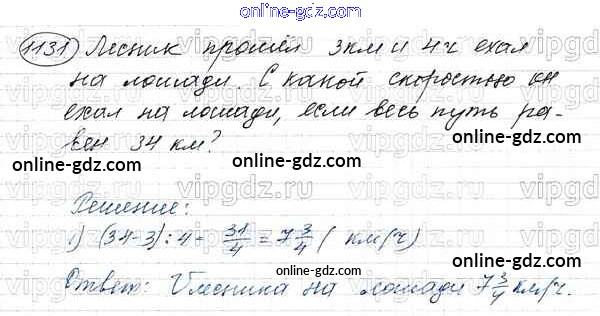 online-gdz.com
1131) Лесник прошёл 3 км и 4 ч ехал
на лошади. С какой скоростью он
ехал на лошади, если весь путь ра-
вен 34 км?
online-gdz.com
online-gdz.com
online-gdz.com
online-gdz.com
Решение:
1) (34-3):4= 31/4 = 7 3/4 ( км/ч)
online-gdz.com
Ответ: Vлесника на лошади 7 3/4 км/ч.
online-gdz.com
vipgdz.ru